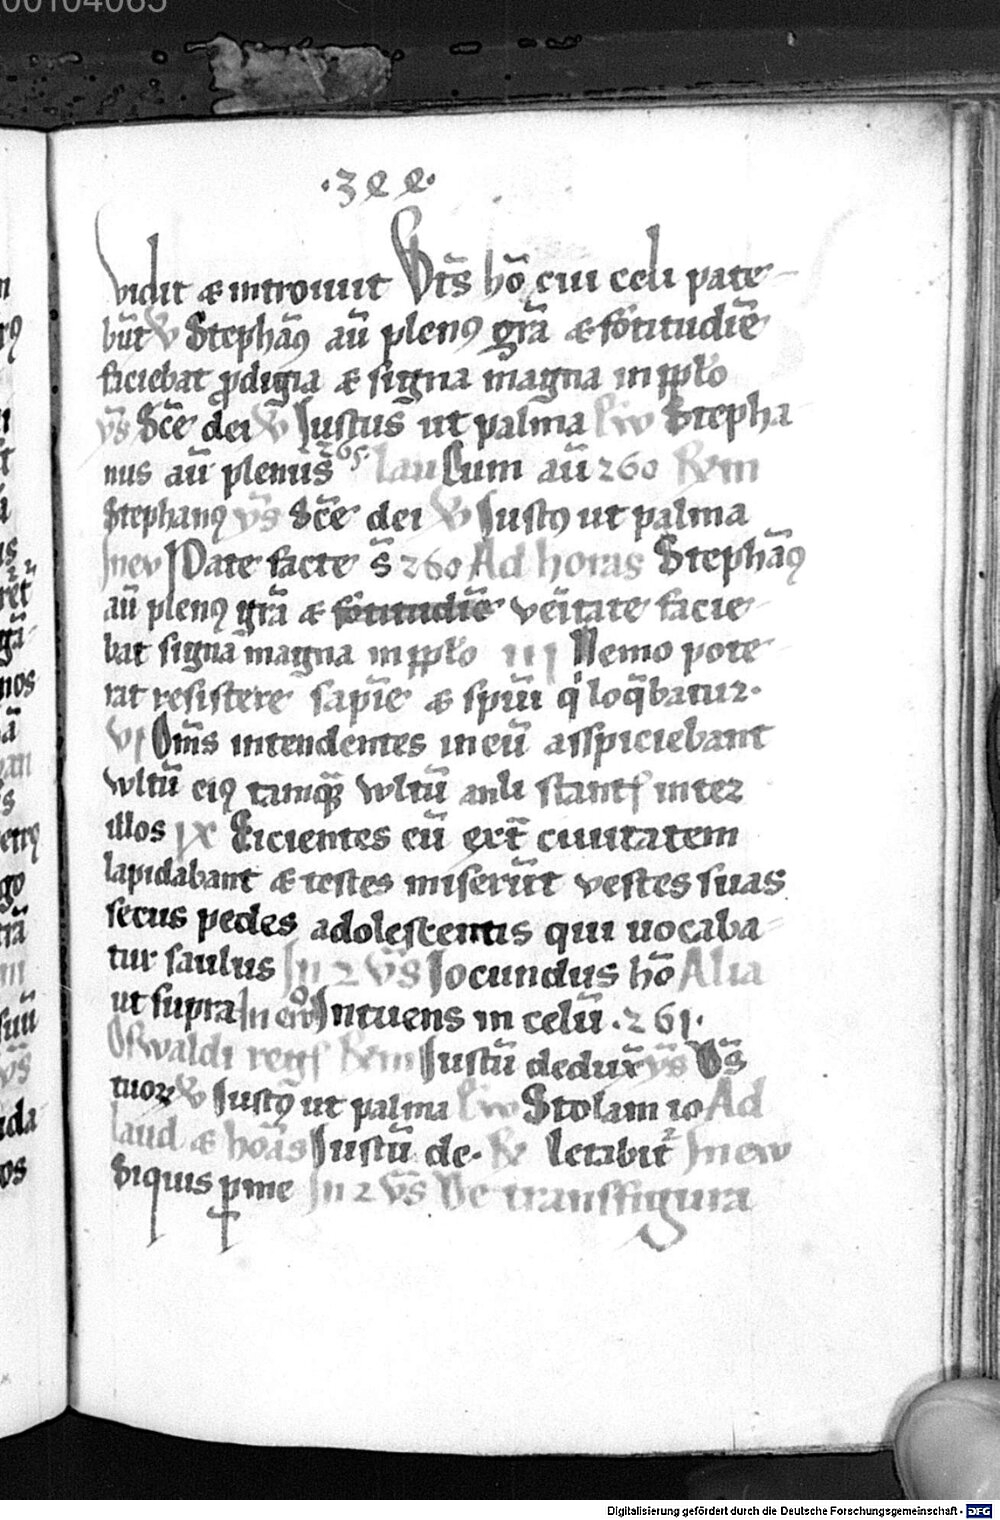 00104065
·3ee·
vidit & introiuit Btūs hō cui celi pate
būt W Stephāꝰ aū plenꝰ grā & fōtitudīe
faciebat ꝓdigia & signa magna in ppl̄o
v̄s Sc̄e dei W Justus ut palma Ew Stepha
nus aū plenus 65 lau Cum aū 260 Rm
Stephanꝰ v̄s Sc̄e dei W Justꝰ ut palma
Inev Pate facte s̄ 260 Ad horas Stephāꝰ
aū plenꝰ grā & fōtitudīe veītate facie
bat signa magna in ppl̄o III Nemo pote
rat resistere sapīe & spūi q loq̄batur.
VI Om̄s intendentes in eū asspiciebant
wltū eiꝰ tamq̄ wltū anli stant inter
illos IX Eicientes eū ext̄ ciuitatem
lapidabant & testes miserūt vestes suas
secus pedes adolescentis qui uocaba
tur saulus In 2 v̄s Jocundus hō Alia
ut supra In Intuens in celū .261.
Oswaldi regꝭ Rm Justū dedux̄ v̄s Os̄
tuoꝝ W Justꝰ ut palma Ew Stolam io Ad
laud & hoās Justū de. R letabit᷑ In ew
Siquis ꝑ me In 2 v̄s De transfigura
Digitalisierung gefördert durch die Deutsche Forschungsgemeinschaft - DFG